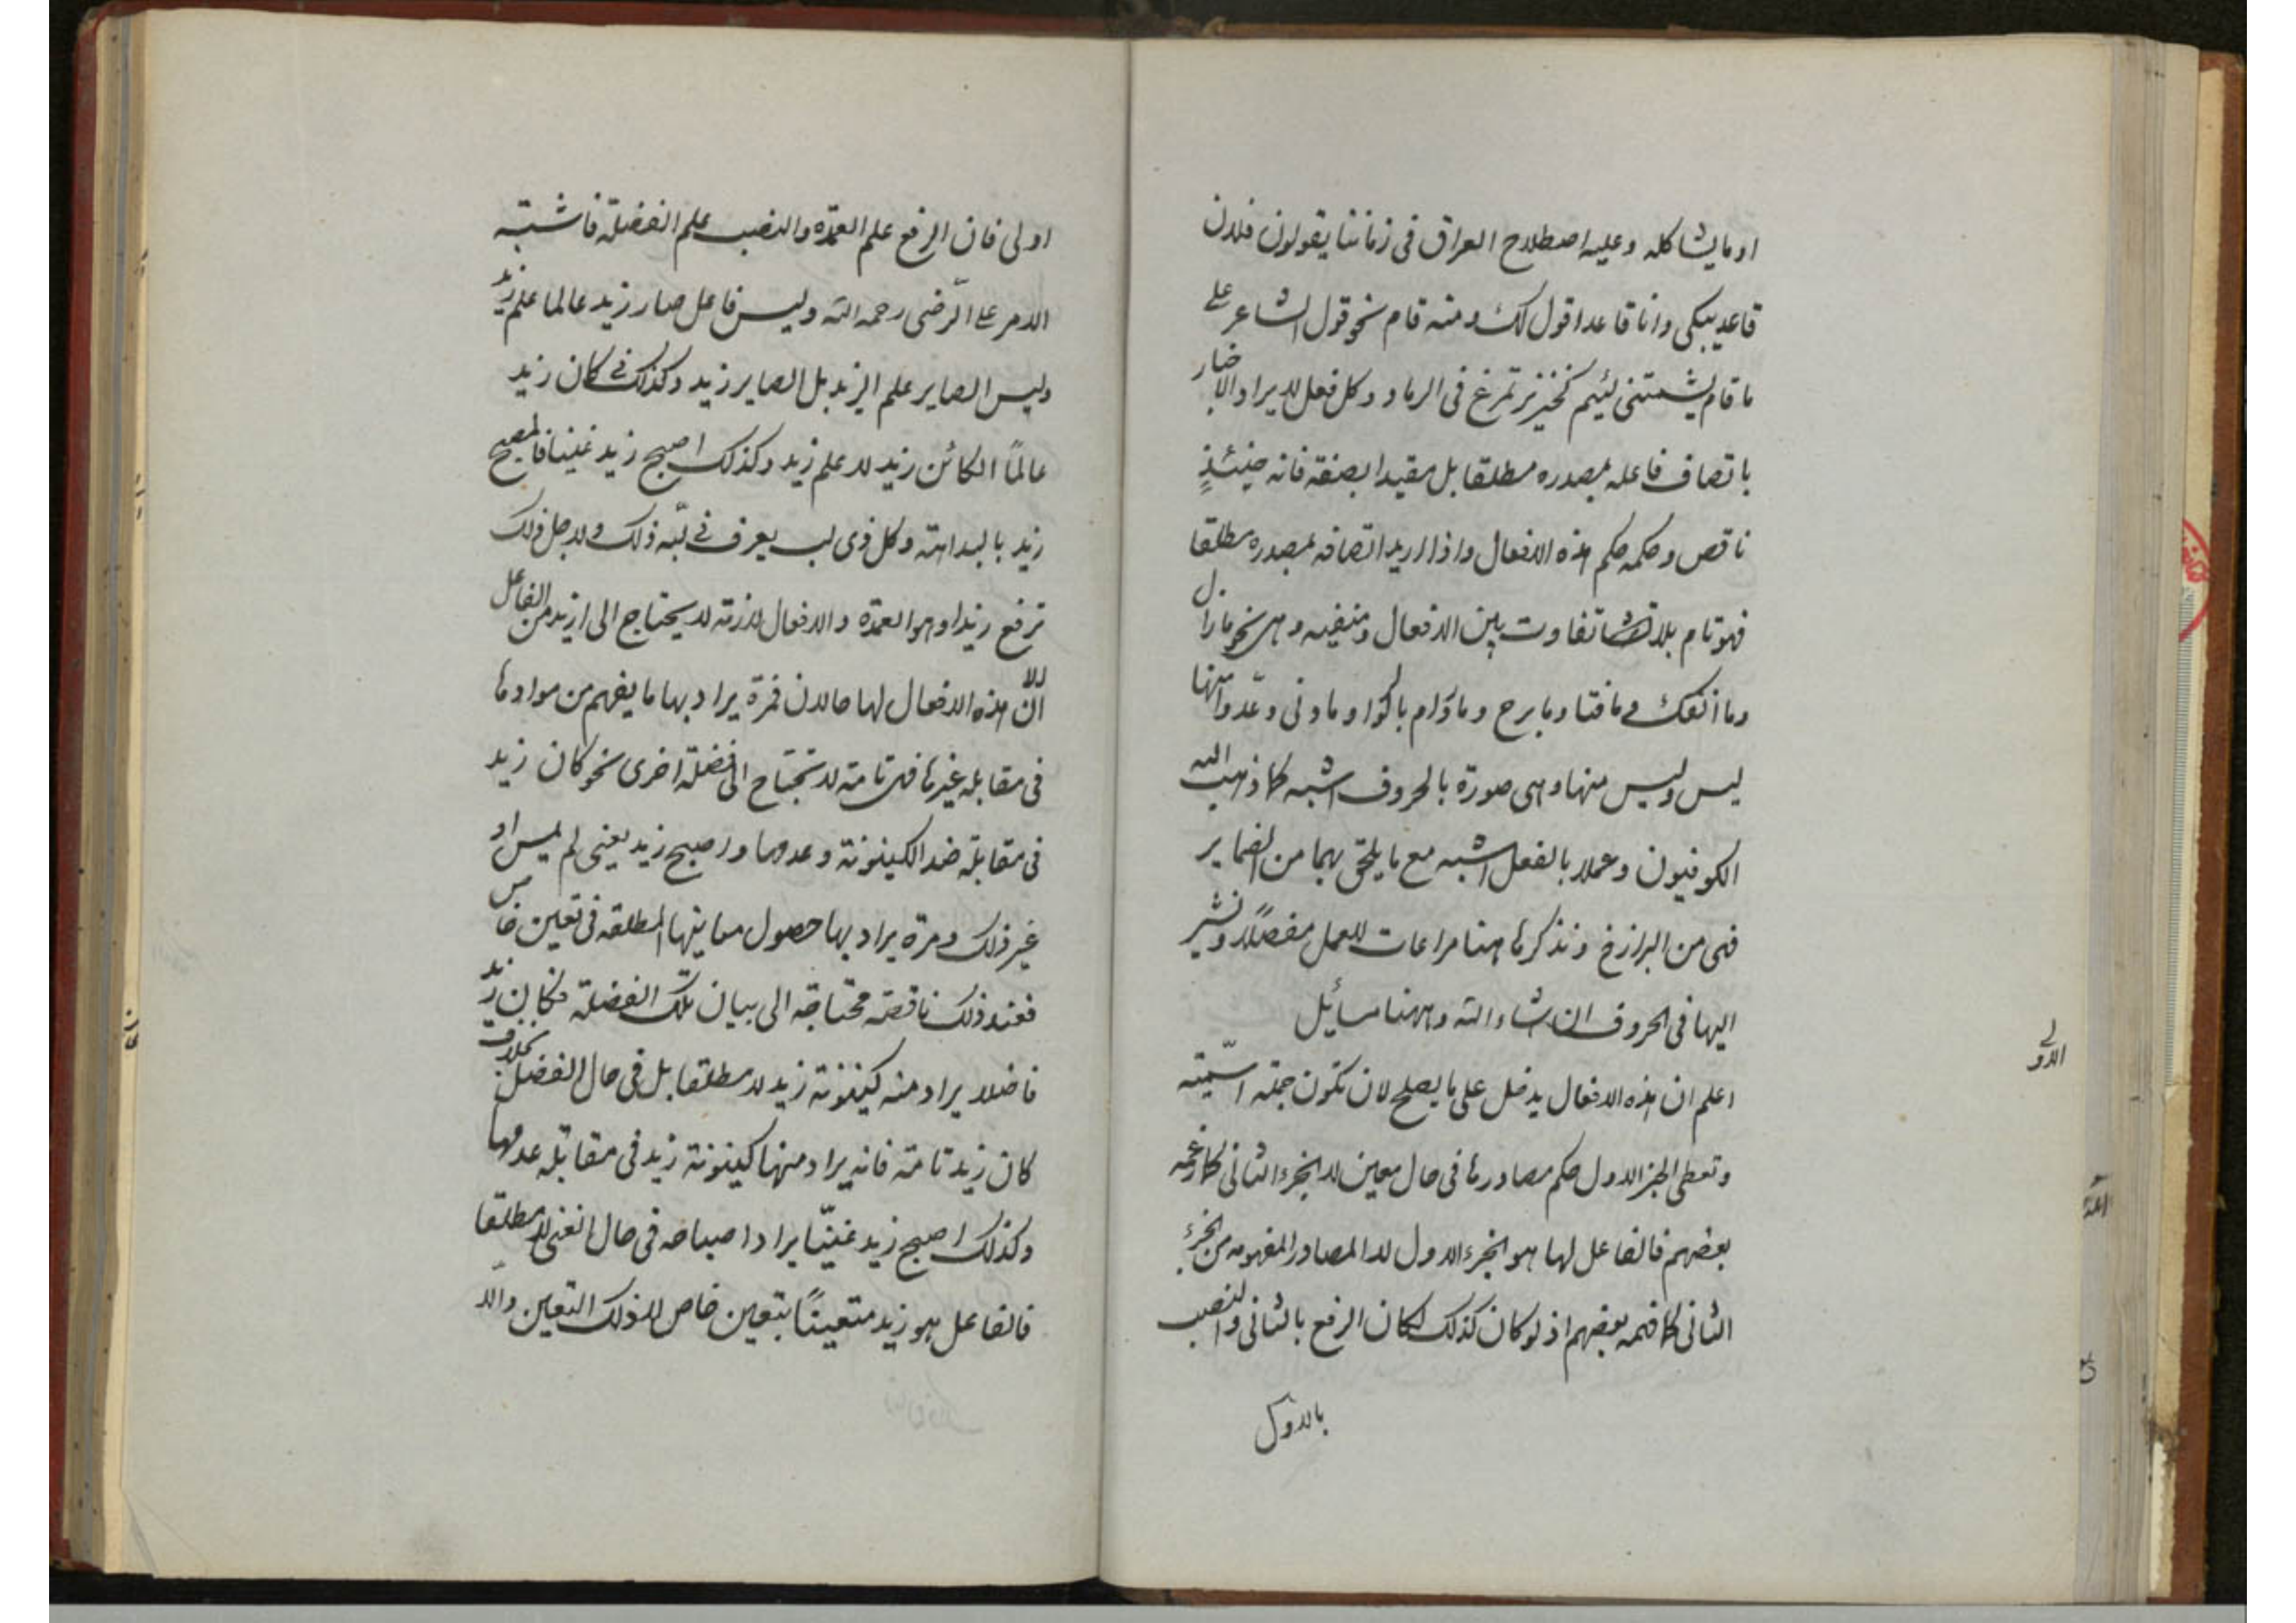 او مايشاكله وعليه اصطلاح العراق فى زماننا يقولون فلان
قاعد يبكى وانا قاعد اقول لك ومنه قام نحو قول الشاعر على
ما قام يشتمنى لئيم كخنزير تمرغ فى الرماد وكل فعل لايراد الاخبار
باتصاف فاعله بمصدره مطلقا بل مقيدا بصفة فانه حينئذٍ
ناقص وحكمه حكم هذه الافعال واذا اريد اتصافه بمصدره مطلقا
فهو تام بلا تفاوت بين الافعال ومنفيه وهى نحو مازال
وما انفك وما فتا وما برح وما ورام بالكوا وما ونى وعدّوا منها
ليس وليس منها وهى صورة بالحروف اشبه كما ذهب اليه
الكوفيون وعملا بالفعل اشبه مع ما يلحق بهما من الضماير
فهى من البرازخ ونذكرها هنا مراعات للعمل مفصلاً ونشير
اليها فى الحروف ان شاء الله وههنا مسائل
الاولى
اعلم ان هذه الافعال يدخل على ما يصلح لان تكون جملة اسميّة
وتعطى الجزء الاول حكم مصادرها فى حال معين لا الجزء الثانى كما زعمه
بعضهم فالفاعل لها هو الجزء الاول لا المصادر المفهومه من الجزء
الثانى كما فهمه بعضهم اذ لو كان كذلك لكان الرفع بالثانى والنصب
بالاول
اولى فان الرفع علم العمدة والنصب علم الفضلة فاشتبه
الامر على الرّضى رحمه الله وليس فاعل صار زيد عالما علم زيد
وليس الصاير علم الزيد بل الصاير زيد وكذلك فى كان زيد
عالمًا الكائن زيد لا علم زيد وكذلك اصبح زيد غنيا فالمصبح
زيد بالبداهة وكل ذى لب يعرف فى لبّه ذلك ولاجل ذلك
ترفع زيدا وهو العمدة والافعال لازمة لا يحتاج الى ازيد من الفاعل
الا انّ هذه الافعال لها حالان فمرة يراد بها ما يفهم من موادها
فى مقابله غيرها فهى تامة لا تحتاج الى فضلة اخرى نحو كان زيد
فى مقابلة ضد الكينونة وعدمها واصبح زيد يعنى لم يمس او
غير ذلك ومرة يراد بها حصول معاينها المطلقه فى تعين خاص
فعند ذلك ناقصة محتاجة الى بيان تلك الفضلة فكان زيد
فاضلا يراد منه كينونة زيد لا مطلقا بل فى حال الفضل بخلاف
كان زيد تامة فانه يراد منها كينونة زيد فى مقابلة عدمها
وكذلك اصبح زيد غنيّا يراد اصباحه فى حال الغنى لا مطلقا
فالفاعل هو زيد متعينًا بتعين خاص لا ذلك التعين والا